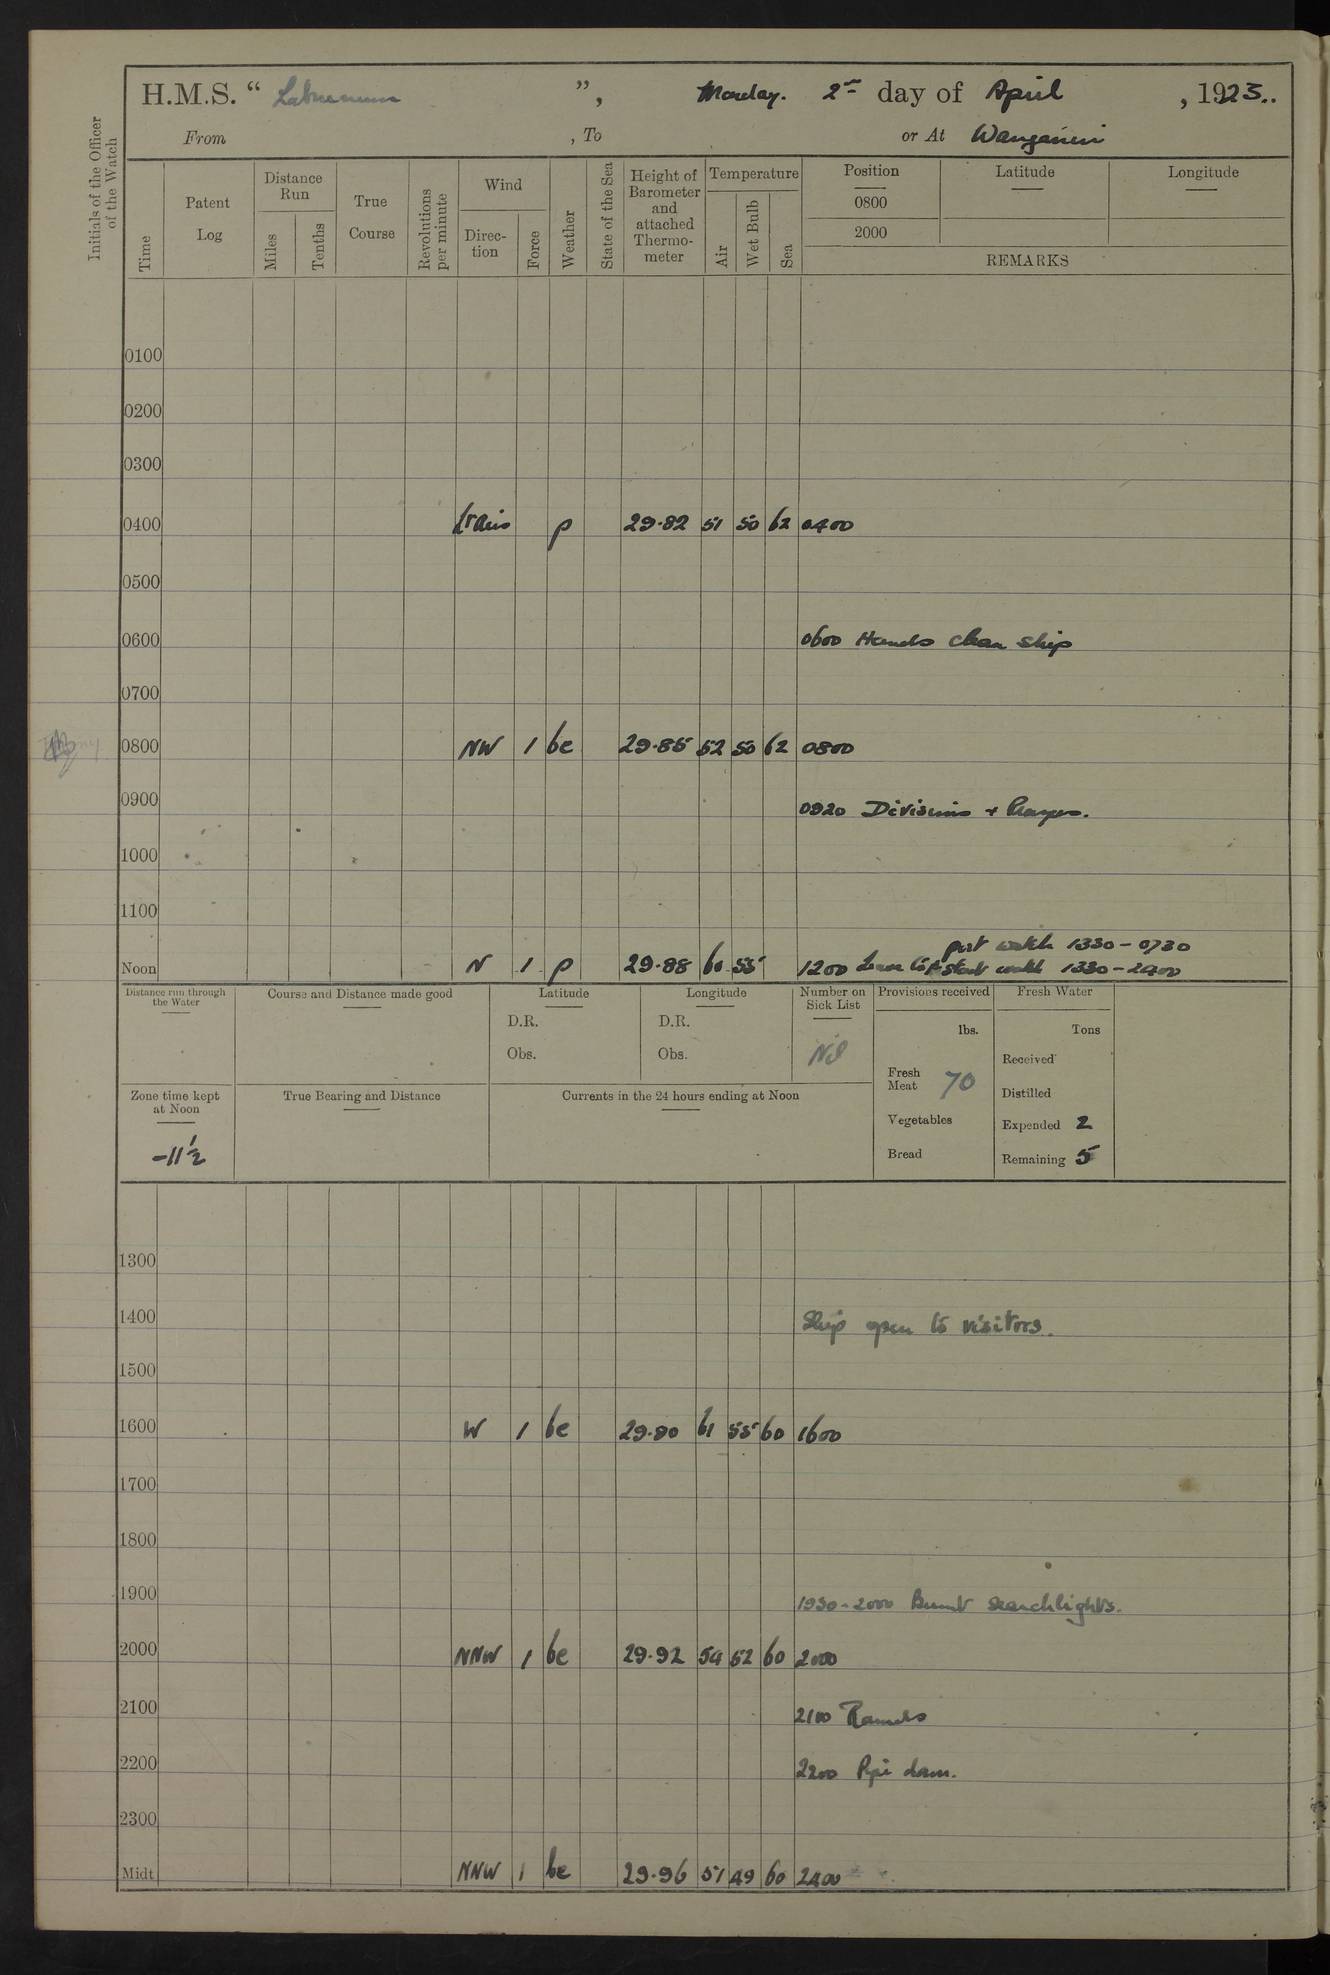 H.M.S. “ Laburnum ”, Monday. 2nd day of April , 1923..
From , To or At Wanganui
Initials of the Officer of the Watch
Time
Patent Log
Distance Run
Miles
Tenths
True Course
Revolutions per minute
Wind
Direction
Force
Weather
State of the Sea
Height of Barometer and attached Thermometer
Temperature
Air
Wet Bulb
Sea
Position
0800
2000
Latitude
Longitude
REMARKS
0100
0200
0300
0400 p 29.82 51 50 62 0400
0500
0600 0600 Hands clean ship
0700
0800 NW 1 bc 29.85 52 50 62 0800
0900 0920 Divisions + Prayers.
1000
1100
port watch 1330 - 0730
Noon N 1 p 29.88 60 55 1200 Leave to stard watch 1330 - 2400
Distance run through the Water
Course and Distance made good
Latitude
D.R.
Obs.
Longitude
D.R.
Obs.
Number on Sick List
Nil
Provisions received
lbs.
Fresh Meat 70
Vegetables
Bread
Fresh Water
Tons
Received
Distilled
Expended 2
Remaining 5
Zone time kept at Noon
-11½
True Bearing and Distance
Currents in the 24 hours ending at Noon
1300
1400 Ship open to visitors.
1500
1600 W 1 bc 29.90 61 55 60 1600
1700
1800
1900 1930-2000 Burnt searchlights.
2000 NNW 1 bc 29.92 54 52 60 2000
2100 2100 Rounds
2200 2200 Pipe down.
2300
Midt NNW 1 bc 29.96 51 49 60 2400